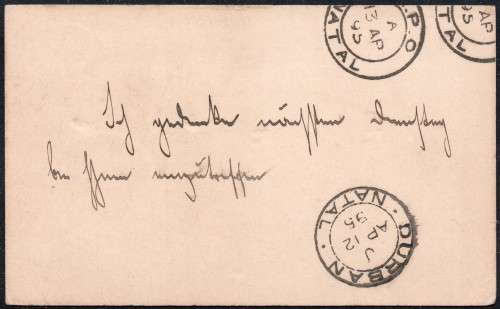 G.P.O
NATAL
A
13 AP
95
AP
95
NATAL
Ich gedenke nächsten Dienstag
bei Ihnen einzutreffen
DURBAN · NATAL ·
J
AP 12
95